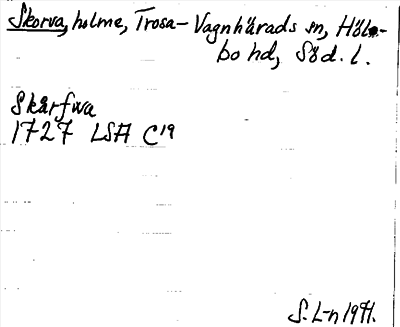 Skorva, holme, Trosa-Vagnhärads sn, Höle-
bo hd, Söd. l.
Skårfwa
1727 LSA C19
S. L-n 1971.